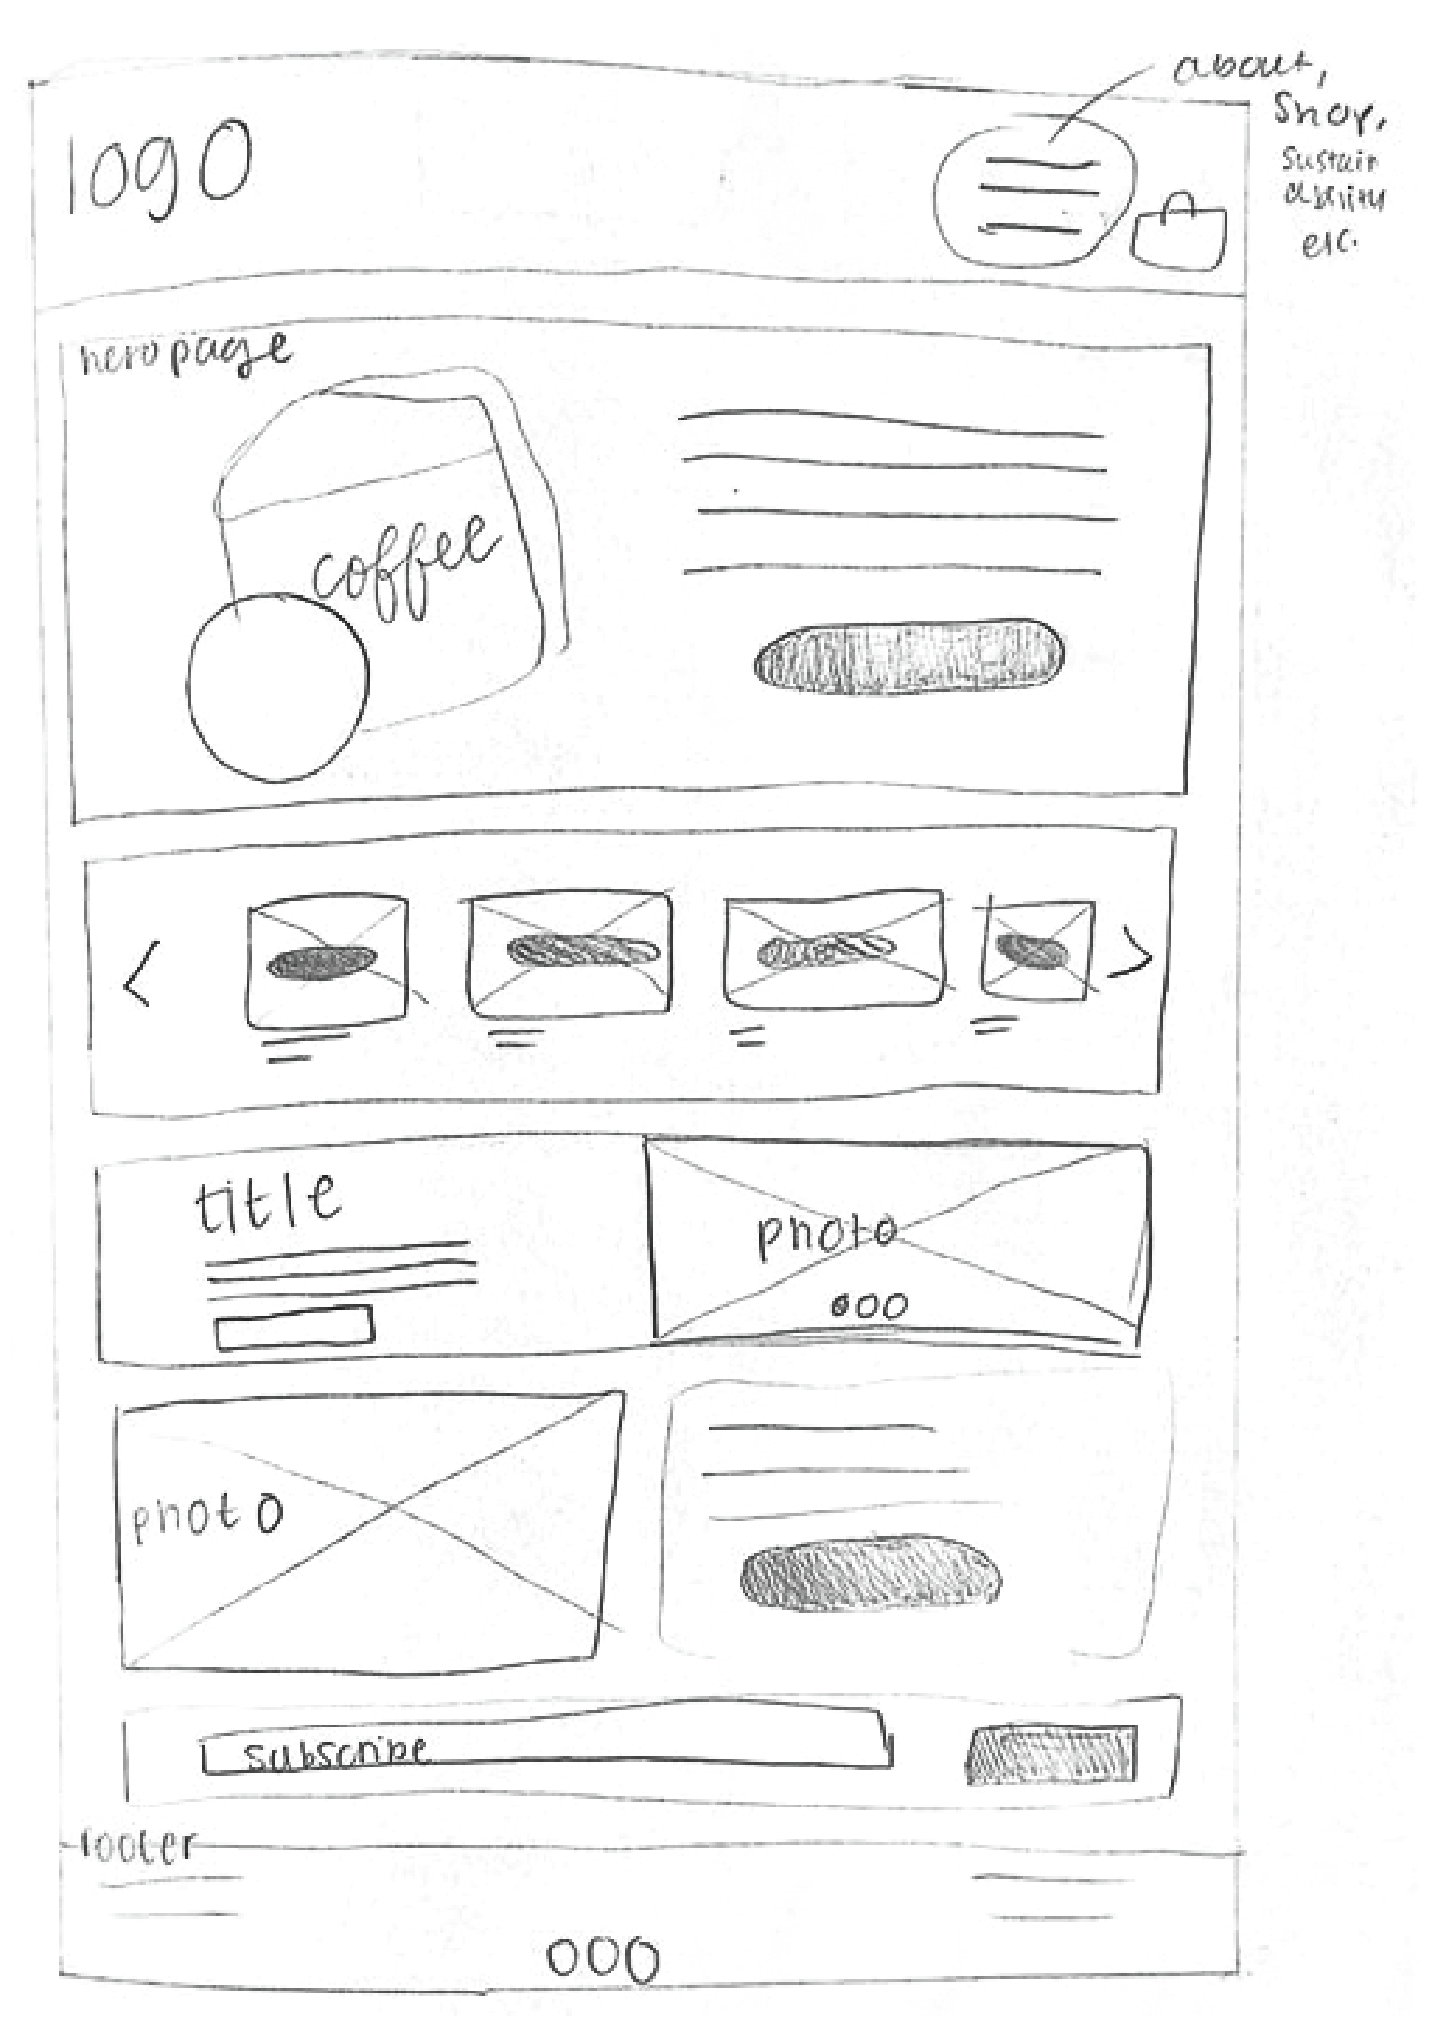 logo
about,
Shop,
sustain
ability
etc.
hero page
coffee
title
photo
photo
subscribe
footer